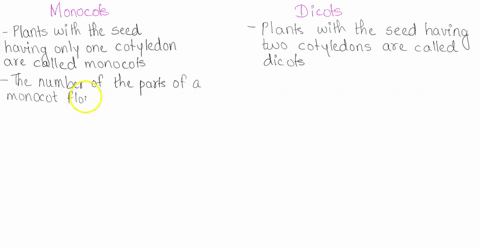 Monocots
- Plants with the seed
having only one cotyledon
are called monocots
- The number of the parts of a
monocot flo
Dicots
- Plants with the seed having
two cotyledons are called
dicots